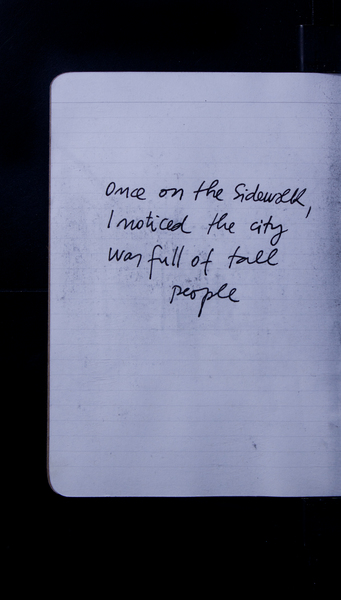 Once on the Sidewalk,
I noticed the city
was full of tall
people